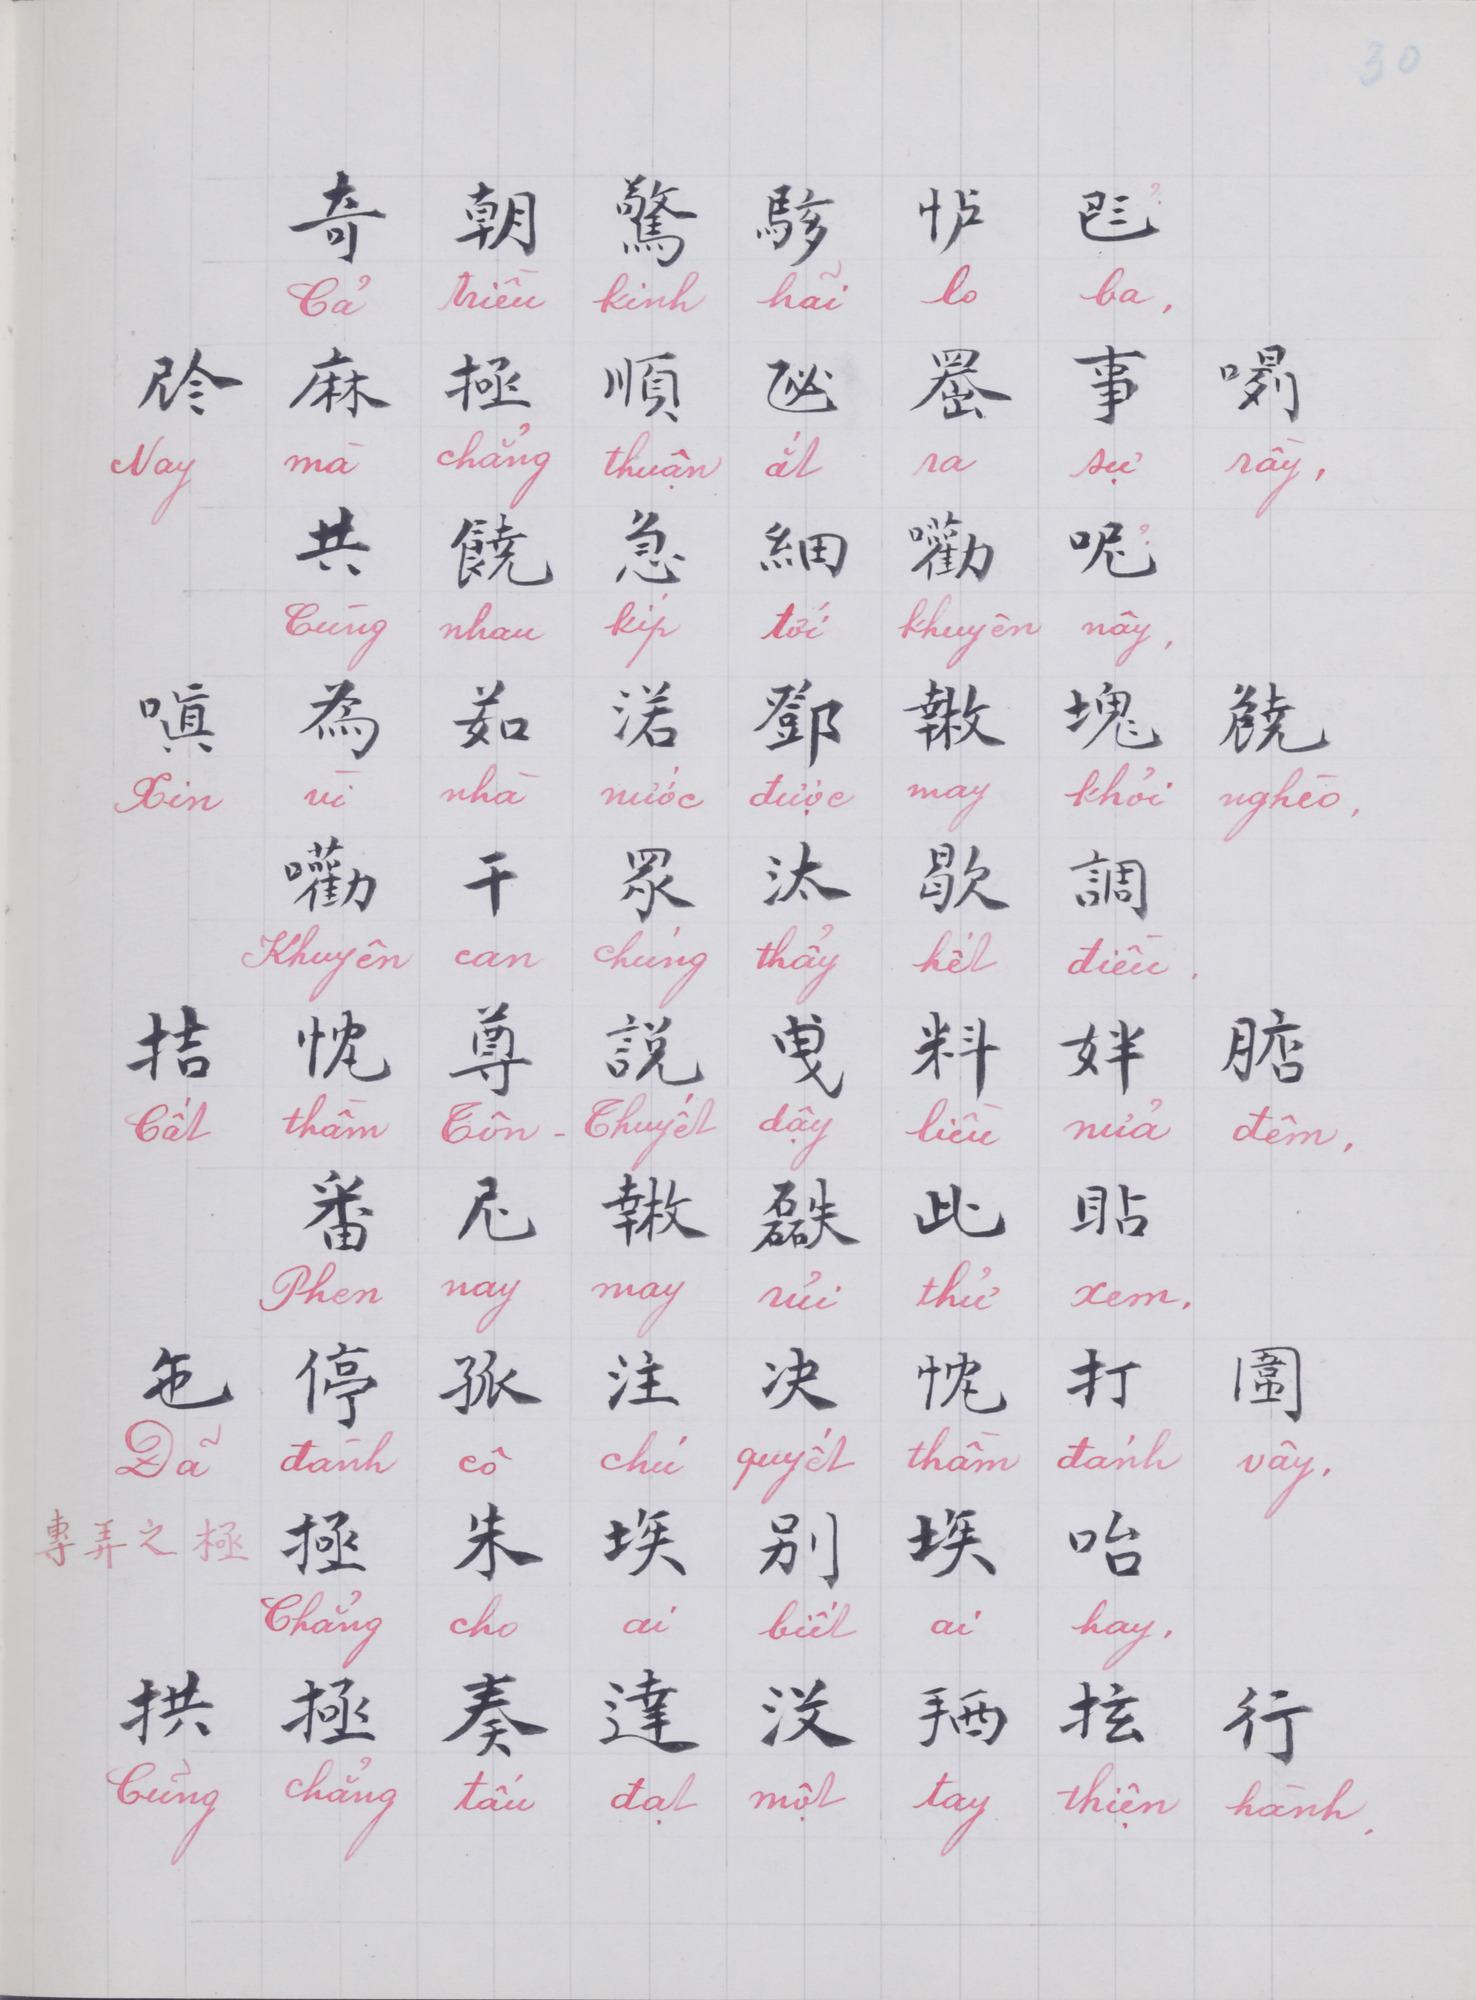 30
奇 朝 驚 駭 怍 𠀧
Cả triều kinh hãi lo ba,
麻 極 順 事
Nay mà chẳng thuận ắt ra sự rầy,
共 饒 急 細 勸 呢
Cùng nhau kíp tới khuyên nầy,
嗔 為 茹 渃 鄧 塊 饒
Xin vì nhà nước được may khỏi nghèo,
勸 干 眾 汰 歇 調
Khuyên can chúng thẩy hết điều.
拮 忱 尊 説 曳 料 姅 𣎀
Cất thầm Tôn-Thuyết dậy liều nửa đêm,
番 此 貼
Phen nay may rủi thử xem.
停 孤 注 决 忱 打 圍
Đã đành cô chú quyết thầm đánh vây,
專弄之極 極 朱 埃 别 埃 咍
Chẳng cho ai biết ai hay,
拱 極 奏 達 沒 拪 抗 行
Cũng chẳng tấu đạt một tay thiện hành.